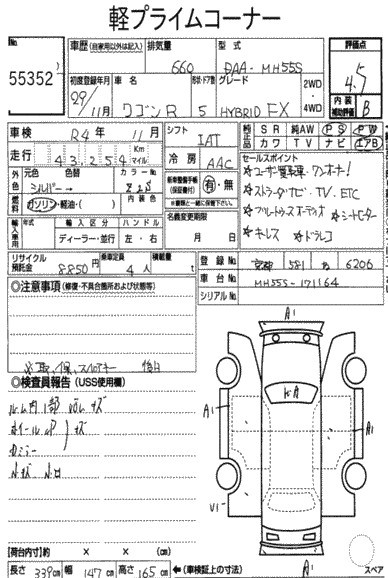 軽プライムコーナー
No.
55352
車歴 (自家用以外は記入)
排気量
660
型式
DAA- MH55S
評価点
4.5
初度登録年月
29/11月
車名
ワゴンR
形状・ドア数
5
グレード
HYBRID FX
2WD
4WD
内装
B
補助
車検
R4年 11月
シフト
IAT
純正品
SR 純AW PS PW
カワ TV ナビ エアB
走行
43,254
Km
マイル
冷房
AAC
セールスポイント
☆ユーザー買取車 ワンオーナー!
外色
元色
色替
カラーNo.
シルバー→
Z2S
新車整備手帳
(保証書付)
有・無
※直接一緒に保管して下さい。
☆ストラーダナビ・TV. ETC
燃料
ガソリン・軽油・( )
内装色
☆シートヒーター
輸入車用
年式
輸入区分
ハンドル
名義変更期限
月 日
☆キーレス ☆ドラレコ
年
ディーラー・並行
左・右
リサイクル預託金
8850円
乗車定員
4人
積載量
t
登録No.
京都 581 6206
車台No.
MH55S-171164
シリアルNo.
◎注意事項 (修復・不具合箇所および状態等)
後日
◎検査員報告 (USS使用欄)
A1
A1
A1
V1
A1
スペア
(荷台内寸) × × (cm)
長さ 339cm 幅 147cm 高さ 165cm ←(車検証上の寸法)